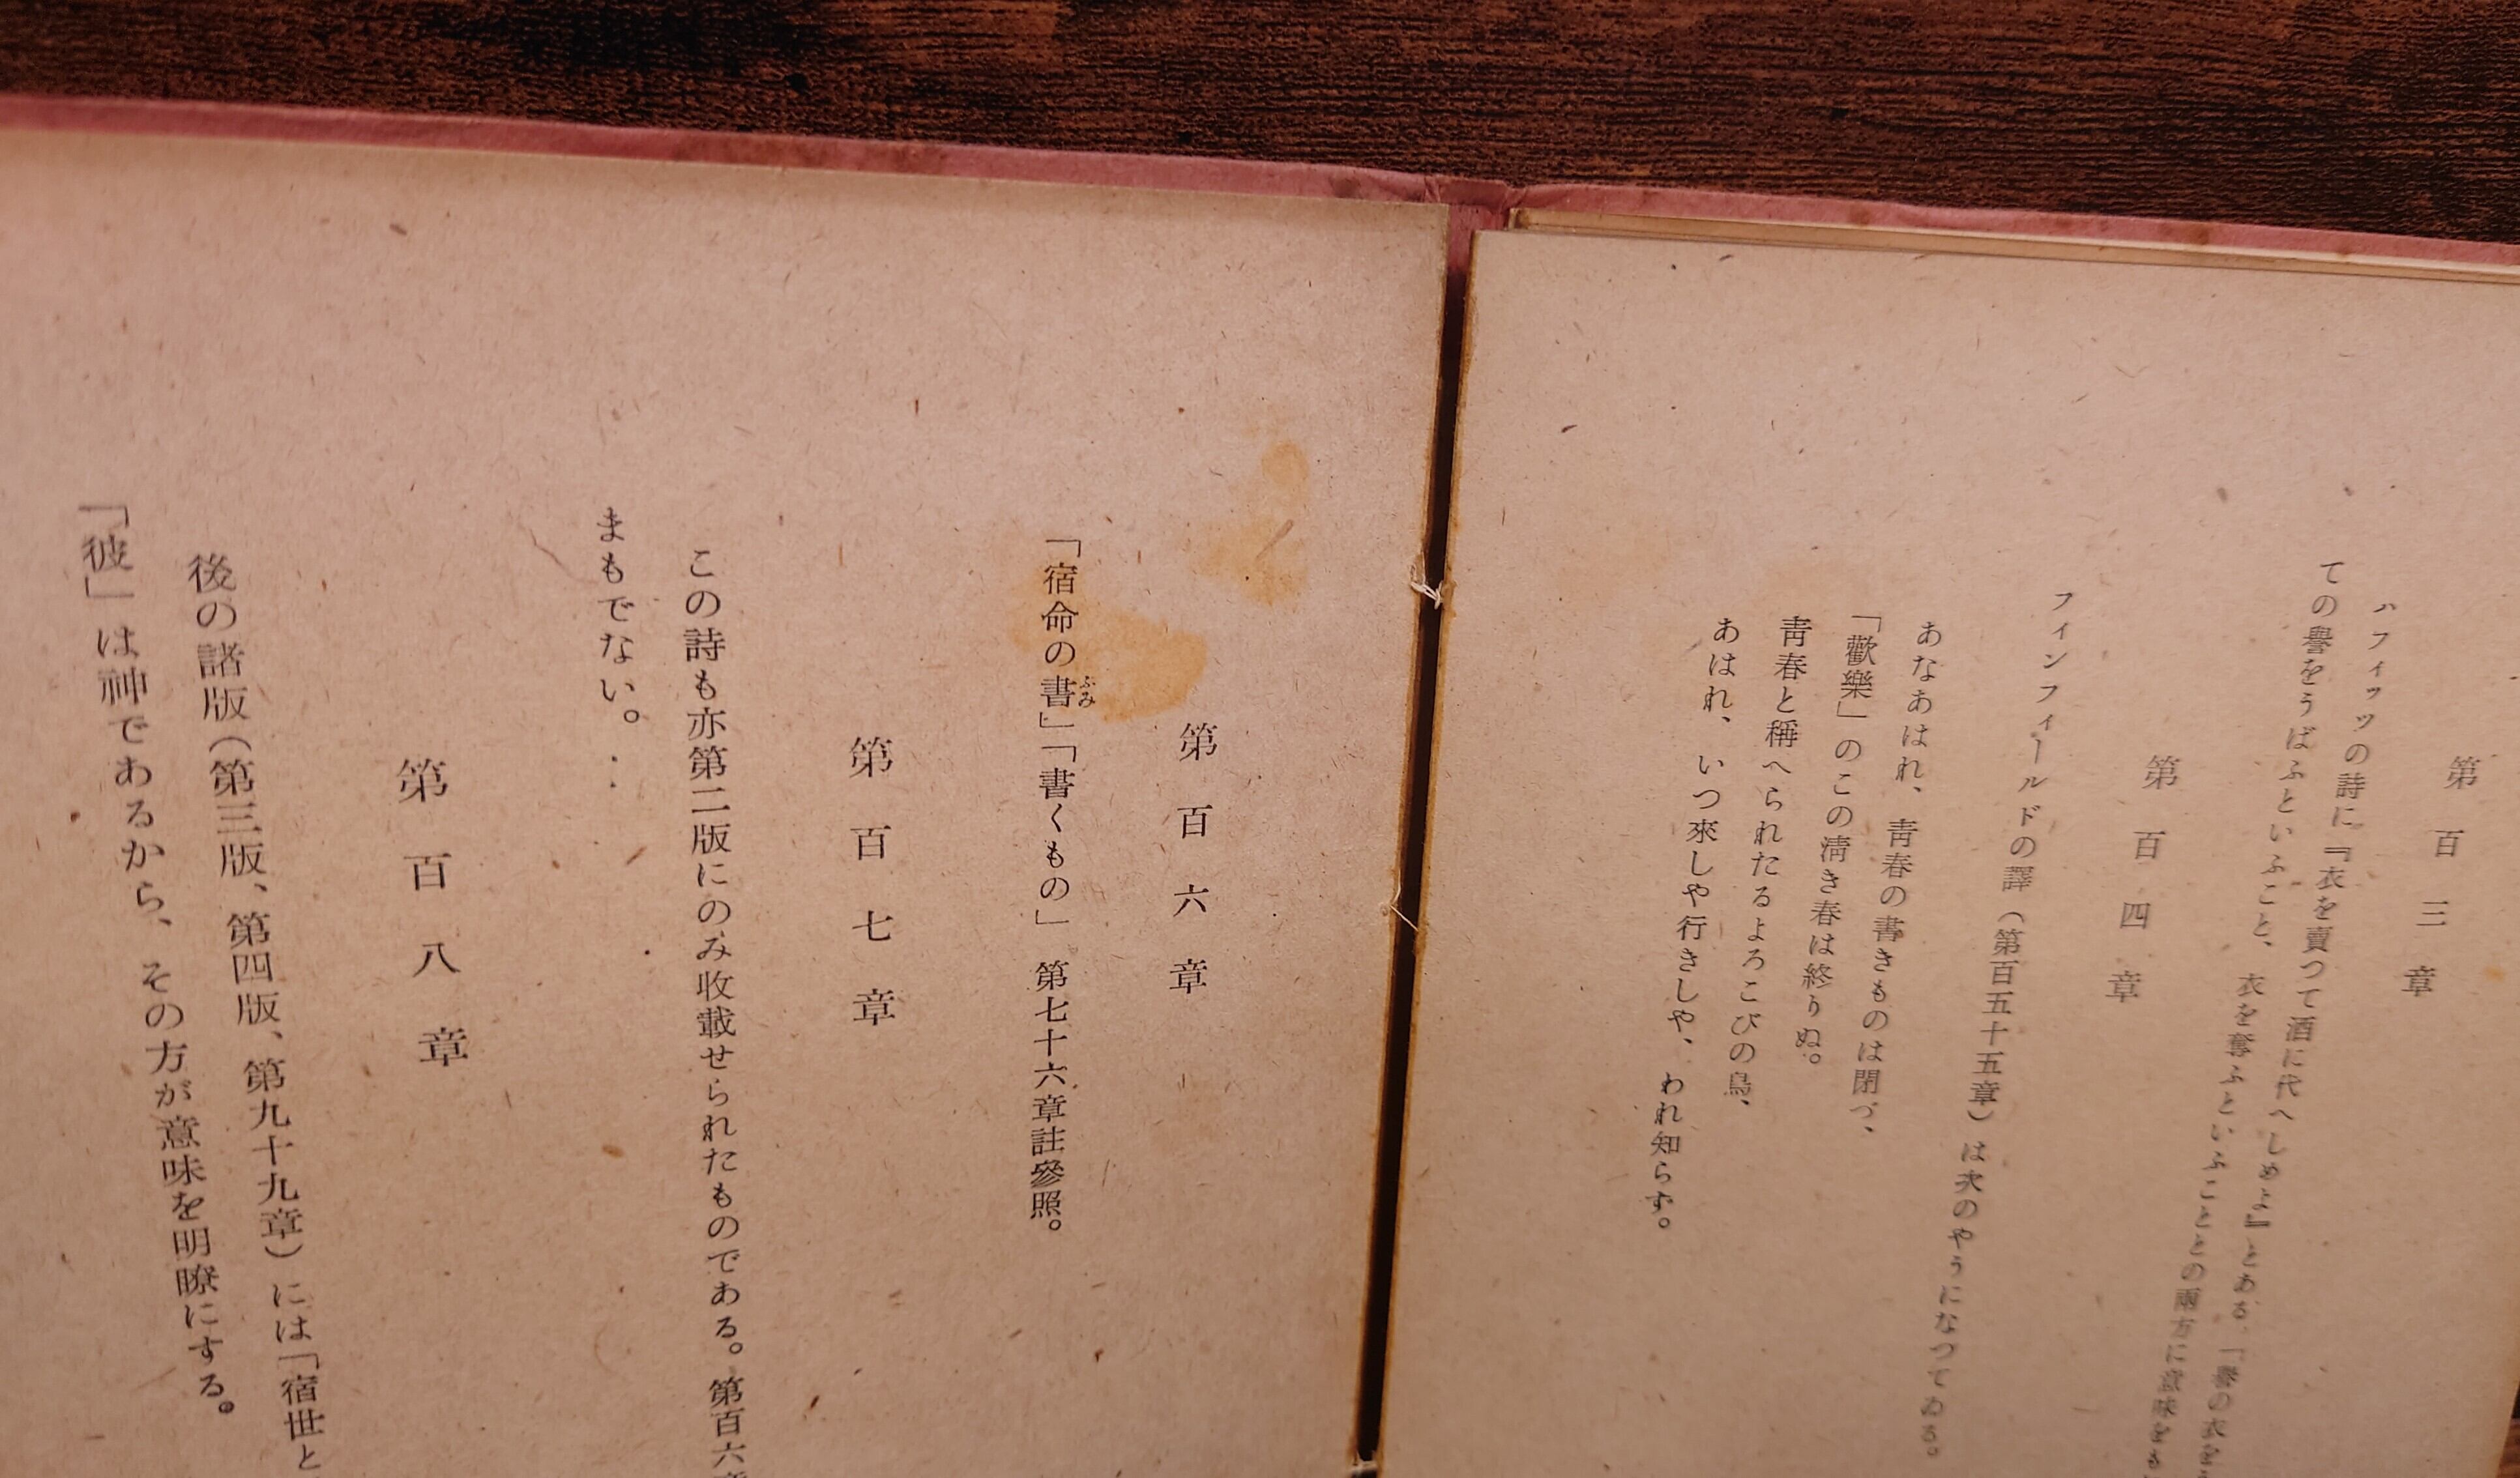 第百三章
ハフィッツの詩に『衣を賣つて酒に代へしめよ』とある。「譽の衣を
ての譽をうばふといふこと、衣を奪ふといふこととの兩方に意味をき
第百四章
フィンフィールドの譯（第百五十五章）は次のやうになつてゐる。
あなあはれ、靑春の書きものは閉づ、
「歡樂」のこの淸き春は終りぬ。
靑春と稱へられたるよろこびの鳥、
あはれ、いつ來しや行きしや、われ知らず。
第百六章
「宿命の書」「書くもの」 第七十六章註參照。
ふみ
第百七章
この詩も亦第二版にのみ收載せられたものである。第百六章
まもでない。
第百八章
後の諸版（第三版、第四版、第九十九章）には「宿世と
「彼」は神であるから、その方が意味を明瞭にする。